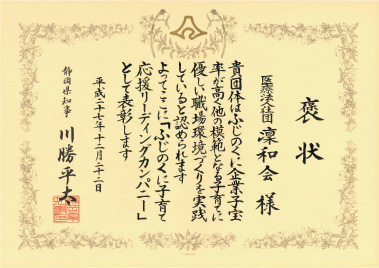 褒状
医療法人社団 凜和会 様
貴団体はふじのくに企業子宝
率が高く他の模範となる子育てに
優しい職場環境づくりを実践
していると認められます
よってここに「ふじのくに子育て
応援リーディングカンパニー」
として表彰します
平成二十七年十二月二十二日
静岡県知事 川勝平太